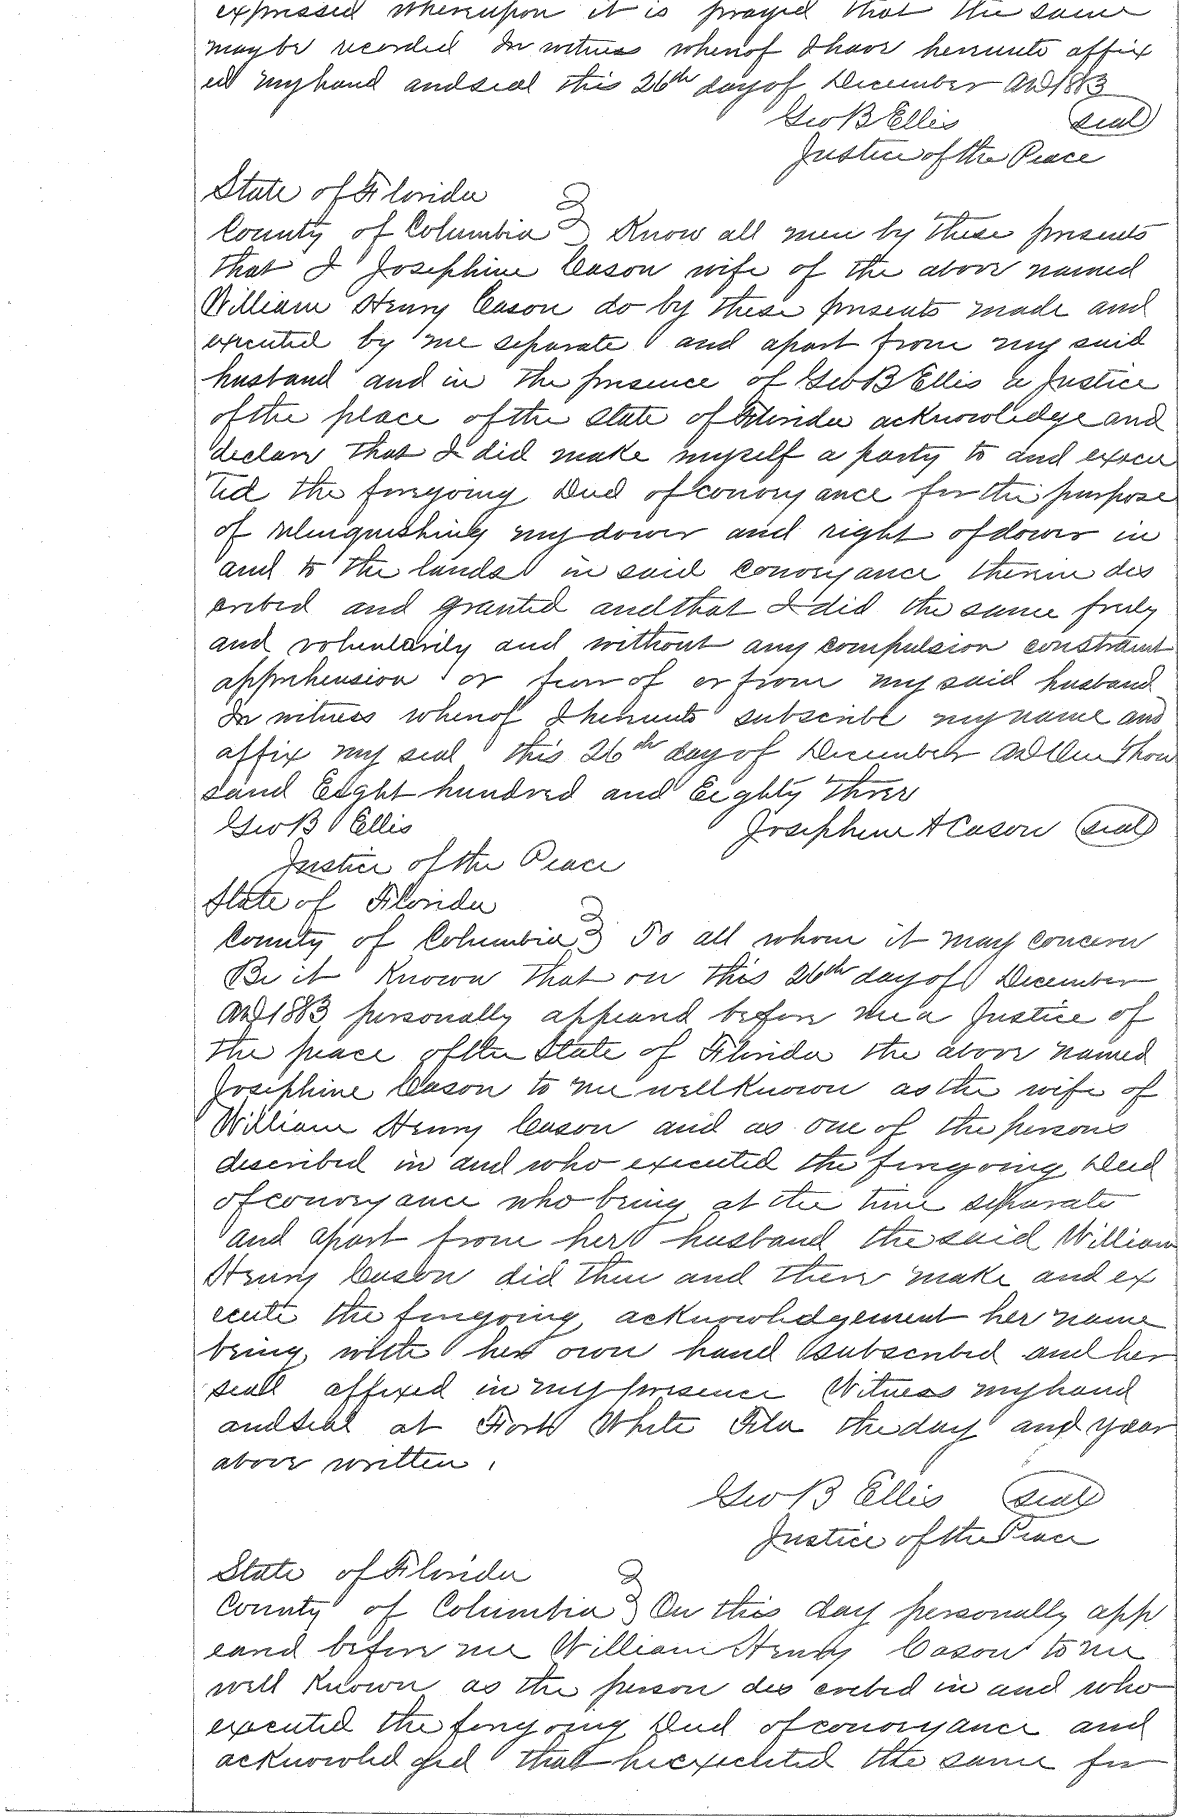 expressed whereupon it is prayed that the same
may be recorded In witness whereof I have hereunto affix
ed my hand and seal this 26th day of December AD 1883
Geo B Ellis seal
Justice of the Peace
State of Florida
County of Columbia } Know all men by these presents
that I Josephine Cason wife of the above named
William Henry Cason do by these presents made and
executed by me separate and apart from my said
husband and in the presence of Geo B Ellis a Justice
of the peace of the State of Florida acknowledge and
declare that I did make myself a party to and execu
ted the foregoing Deed of conveyance for the purpose
of relinquishing my dower and right of dower in
and to the lands in said conveyance therein des
cribed and granted and that I did the same freely
and voluntarily and without any compulsion constraint
apprehension or fear of or from my said husband
In witness whereof I hereunto subscribe my name and
affix my seal this 26th day of December AD One Thou
sand Eight hundred and Eighty Three
Geo B Ellis Josephine A Cason seal
Justice of the Peace
State of Florida
County of Columbia } To all whom it may concern
Be it Known that on this 26th day of December
AD 1883 personally appeared before me a Justice of
the peace of the State of Florida the above named
Josephine Cason to me well Known as the wife of
William Henry Cason and as one of the persons
described in and who executed the foregoing Deed
of conveyance who being at the time separate
and apart from her husband the said William
Henry Cason did then and there make and ex
ecute the foregoing acknowledgement her name
being with her own hand subscribed and her
seal affixed in my presence Witness my hand
and seal at Fort White Fla the day and year
above written.
Geo B Ellis seal
Justice of the Peace
State of Florida
County of Columbia } On this day personally app
eared before me William Henry Cason to me
well Known as the person des cribed in and who
executed the foregoing Deed of conveyance and
acknowledged that he executed the same for